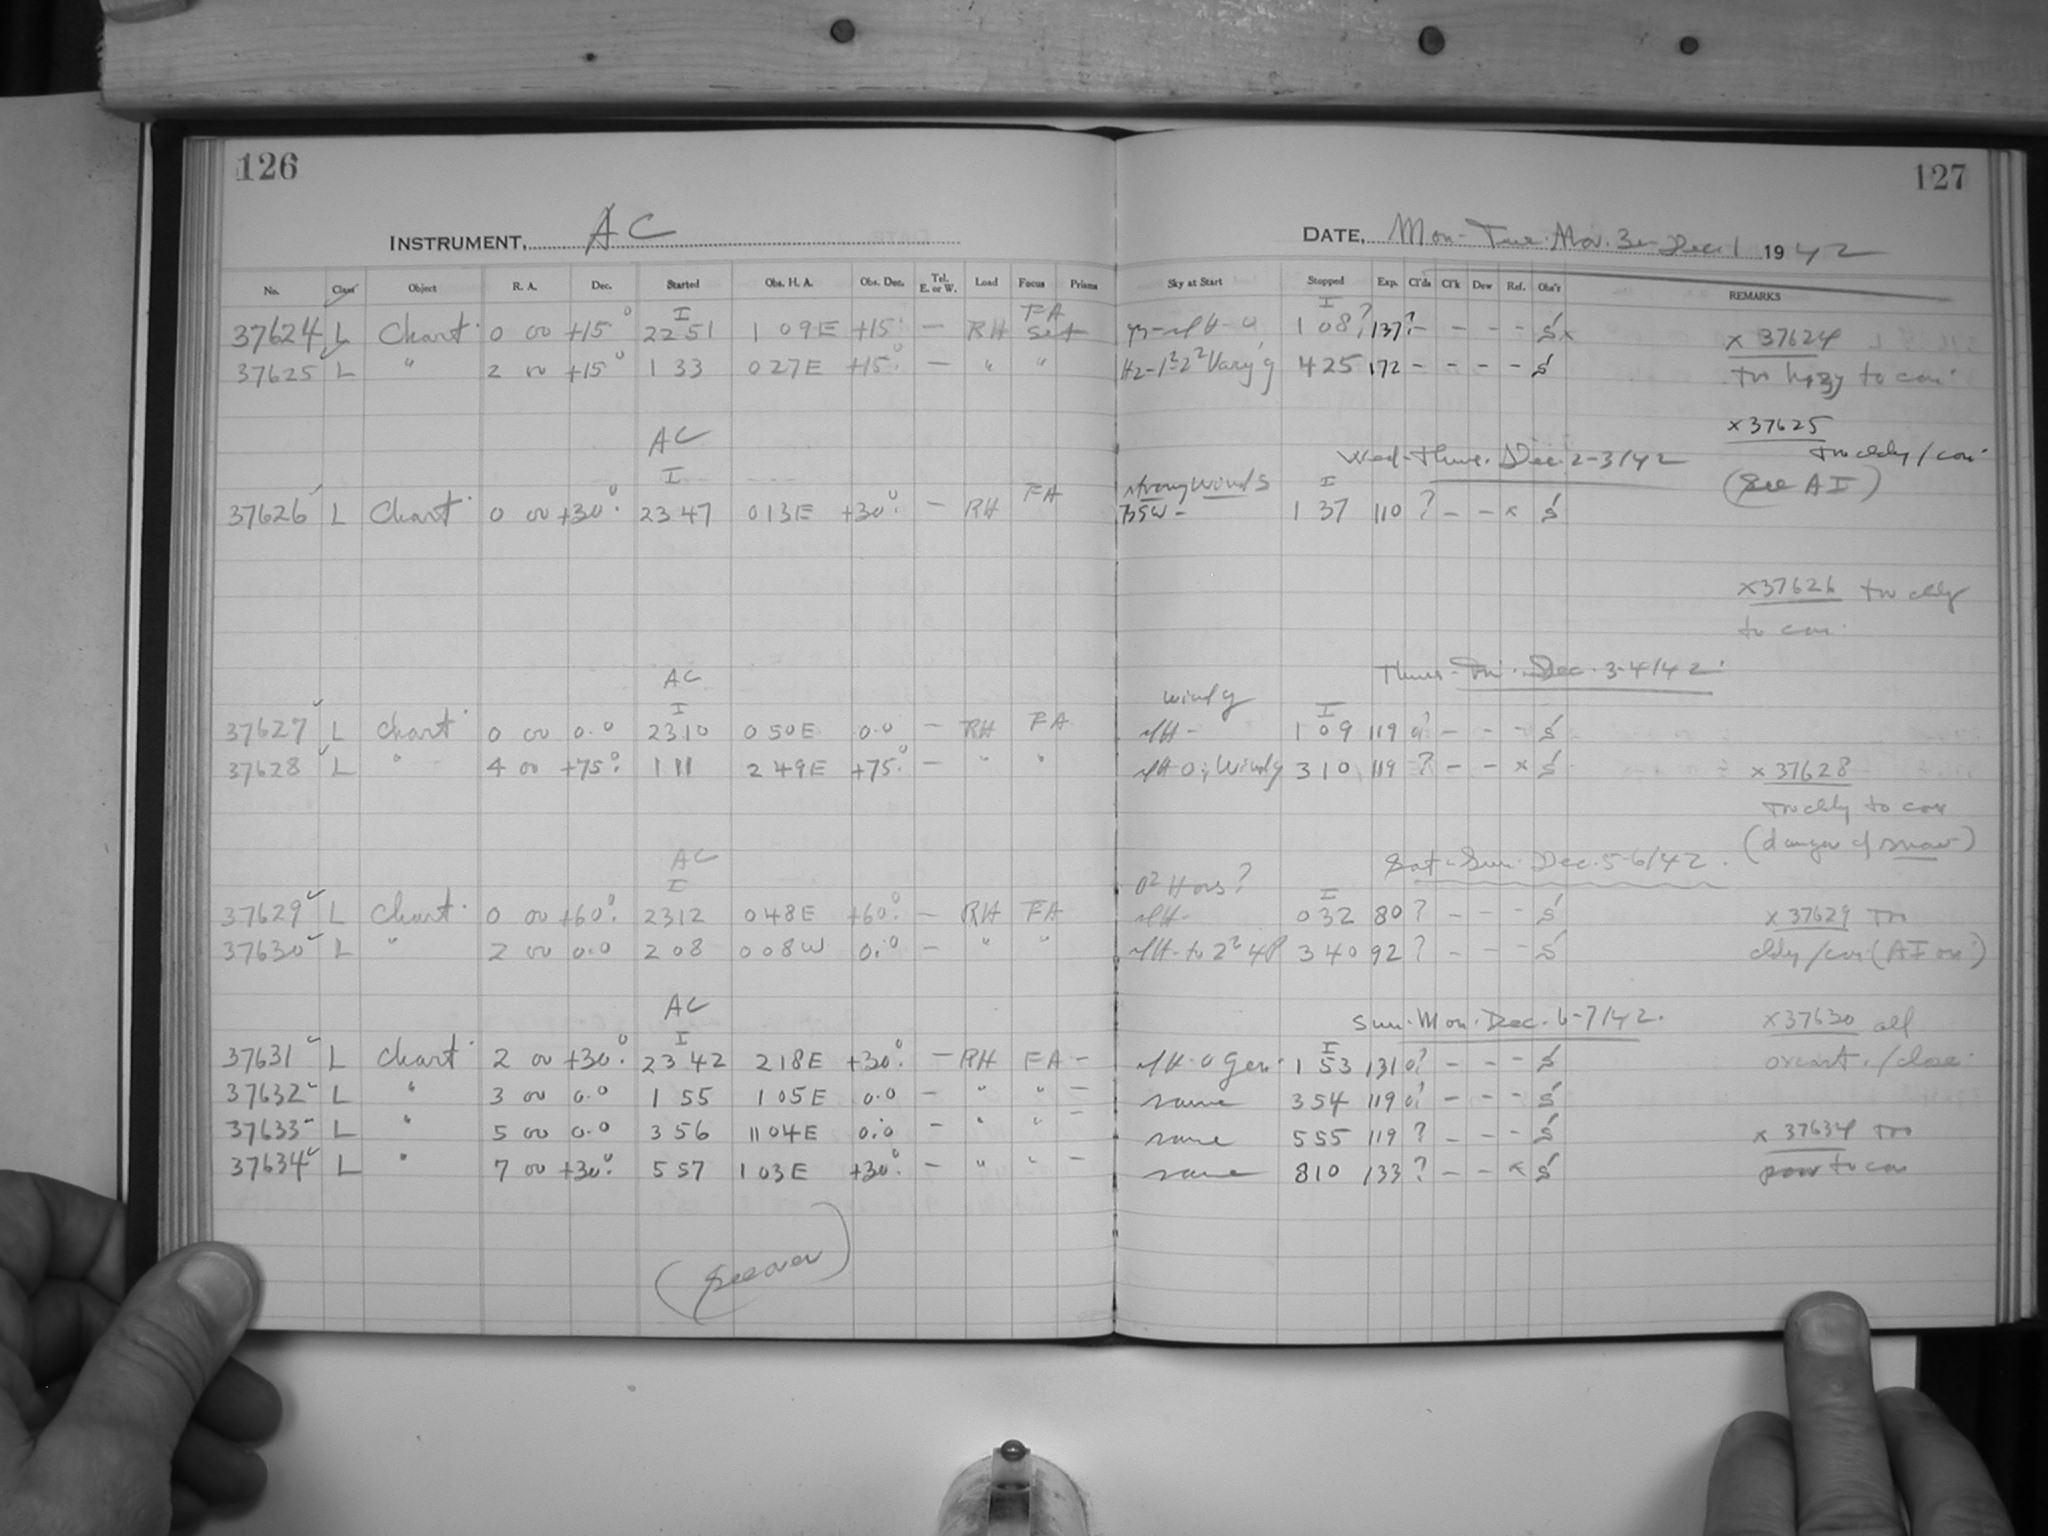 126
127
INSTRUMENT, AC
DATE, Mon-Tue. Nov. 30-Dec. 1 1942
No. Class Object R. A. Dec. Started Obs. H. A. Obs. Dec. Tel. E. or W. Load Focus Prisms Sky at Start Stopped Exp. Cl'ds Cl'k Dew Ref. Obs'r REMARKS
I FA I
37624 L Chart 0 00 +15° 22 51 1 09E +15° — RH Set 1 08? 137? - - - - S x
x 37624
37625 L " 2 00 +15° 1 33 0 27E +15° — " " Vary'g 4 25 172 - - - - S
too hazy to con.
x 37625
too cldy/con.
AC
Wed-Thur. Dec. 2-3/42
(see AI)
I FA strong winds I
37626 L Chart 0 00 +30° 23 47 0 13E +30° — RH BSW - 1 37 110 ? - - x S
x37626 too cldy
to con.
AC
Thurs-Fri. Dec. 3-4/42
I windy I
37627 L Chart 0 00 0.0 23 10 0 50E 0.0 — RH FA 1 09 119 0? - - - S
37628 L " 4 00 +75° 1 11 2 49E +75° — " " Windy 3 10 119 ? - - x S
x 37628
too cldy to con
(danger of snow)
AC
Sat-Sun. Dec. 5-6/42.
I I
37629 L Chart 0 00 +60° 23 12 0 48E +60° — RH FA 0 32 80 ? - - - S
x 37629 too
37630 L " 2 00 0.0 2 08 0 08W 0.0 — " " 3 40 92 ? - - - S
cldy/con (AI on)
AC
Sun-Mon. Dec. 6-7/42.
x37630 all
I I
37631 L Chart 2 00 +30° 23 42 2 18E +30° — RH FA - 1 53 131 0? - - - S
overcast./close.
37632 L " 3 00 0.0 1 55 1 05E 0.0 — " " — same 3 54 119 0? - - - S
37633 L " 5 00 0.0 3 56 1 04E 0.0 — " " — same 5 55 119 ? - - - S
x 37634 too
37634 L " 7 00 +30° 5 57 1 03E +30° — " " — same 8 10 133 ? - - x S
poor to con
(see over)